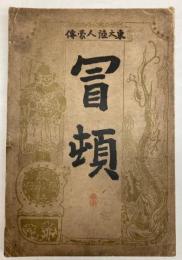 東大陸人豪傳
冒頓